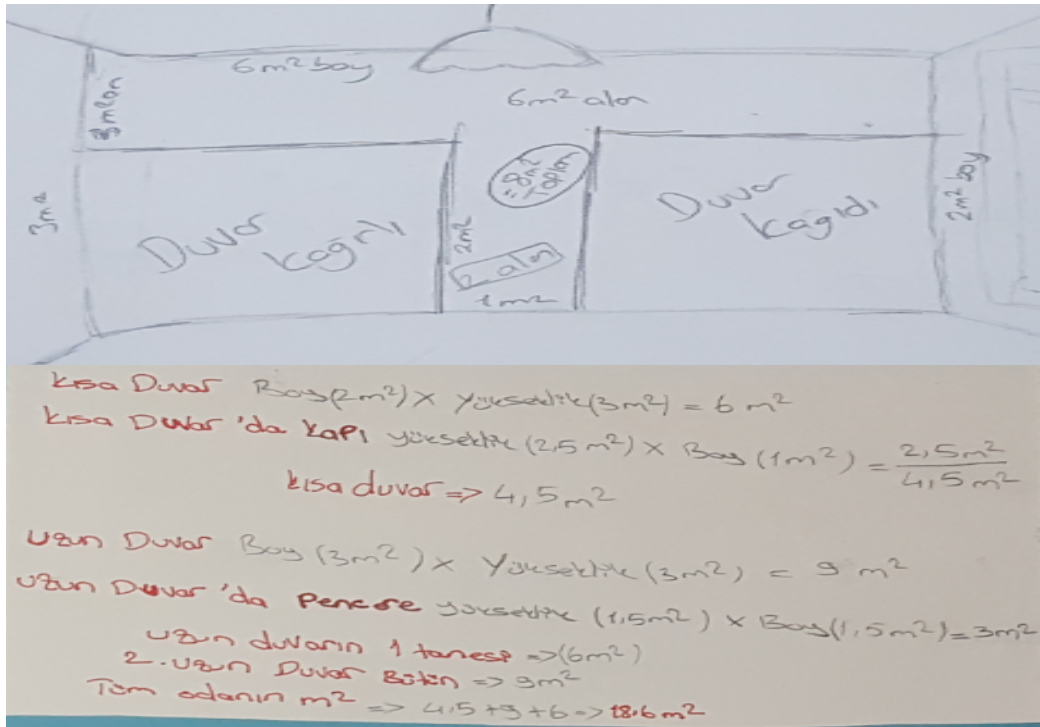 6m² boy
6m² alan
3m
3m²
Duvar
kağıdı
2m²
=8m²
Toplam
2 alan
1m²
Duvar
kağıdı
2m² boy
kısa Duvar Boy(2m²) x yükseklik(3m²) = 6 m²
kısa Duvar 'da kapı yükseklik (2,5 m²) x Boy (1m²) = 2,5m²
4,5 m²
kısa duvar => 4,5m²
uzun Duvar Boy (3m²) x Yükseklik (3m²) = 9 m²
uzun Duvar 'da Pencere yükseklik (1,5m²) x Boy(1,5m²)=3m²
uzun duvarın 1 tanesi =>(6m²)
2. uzun Duvar Bütün => 9m²
Tüm odanın m² => 4,5+9+6=> 18.6m²